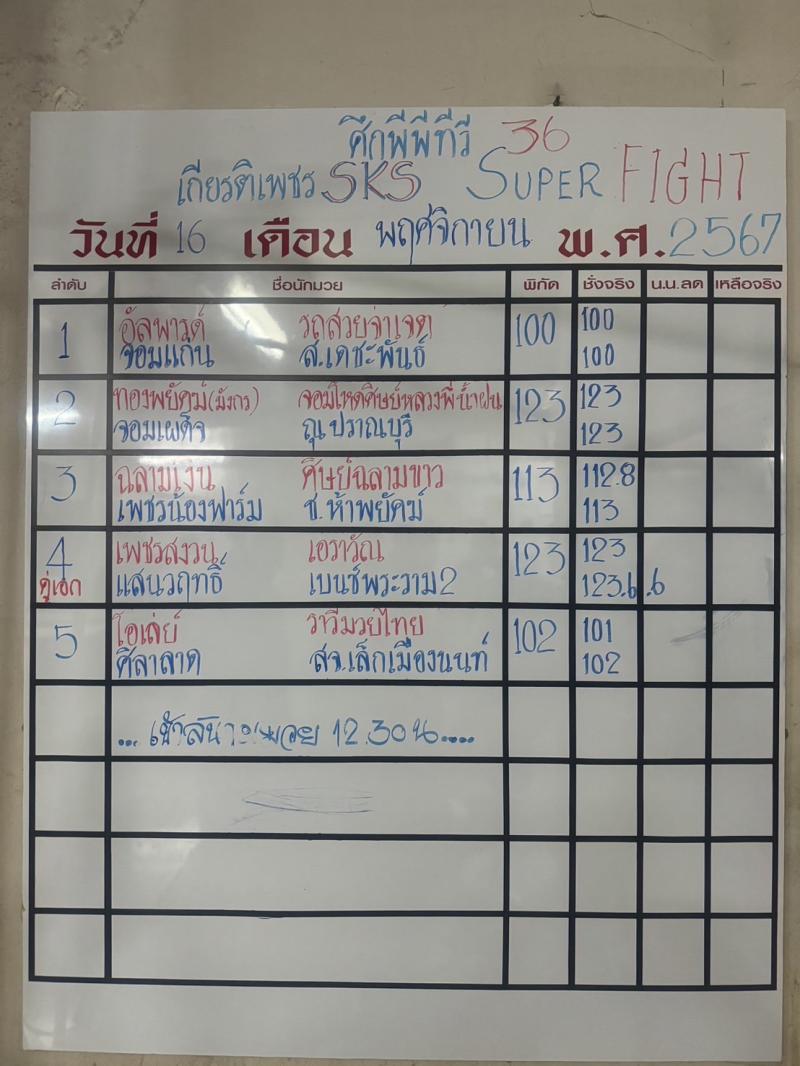 ศึกพีพีทีวี 36
เกียรติเพชร SKS SUPER FIGHT
วันที่ 16 เดือน พฤศจิกายน พ.ศ. 2567
ลำดับ ชื่อนักมวย พิกัด ชั่งจริง น.น.ลด เหลือจริง
1 อัลพารด์ รถสวยจ่าเจต 100 100
จอมแก่น ส.เดชะพันธ์ 100
2 ทองพยัคฆ์(มังกร) จอมโหดศิษย์หลวงพี่น้ำฝน 123 123
จอมเผด็จ ณุปราณบุรี 123
3 ฉลามเงิน ศิษย์ฉลามขาว 113 112.8
เพชรน้องฟาร์ม ช.ห้าพยัคฆ์ 113
4 เพชรสงวน เอราวัณ 123 123
คู่เอก แสนวฤทธิ์ เบนซ์พระราม2 123.6 .6
5 โอเล่ย์ ราวีมวยไทย 102 101
ศิลาลาด สจ.เล็กเมืองนนท์ 102
... เข้าสนามมวย 12.30 น.....